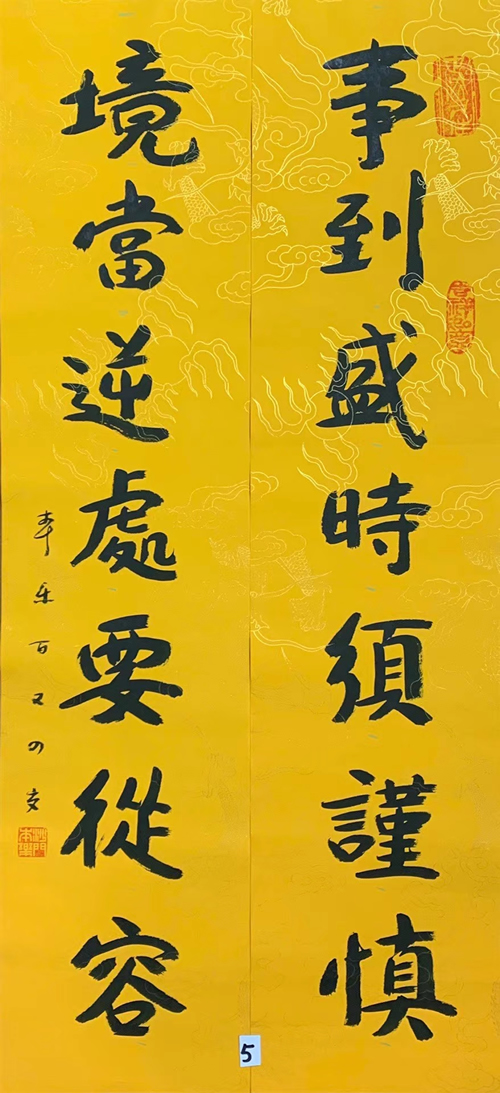 事到盛時須謹慎
境當逆處要從容
本樂百又四岁
5